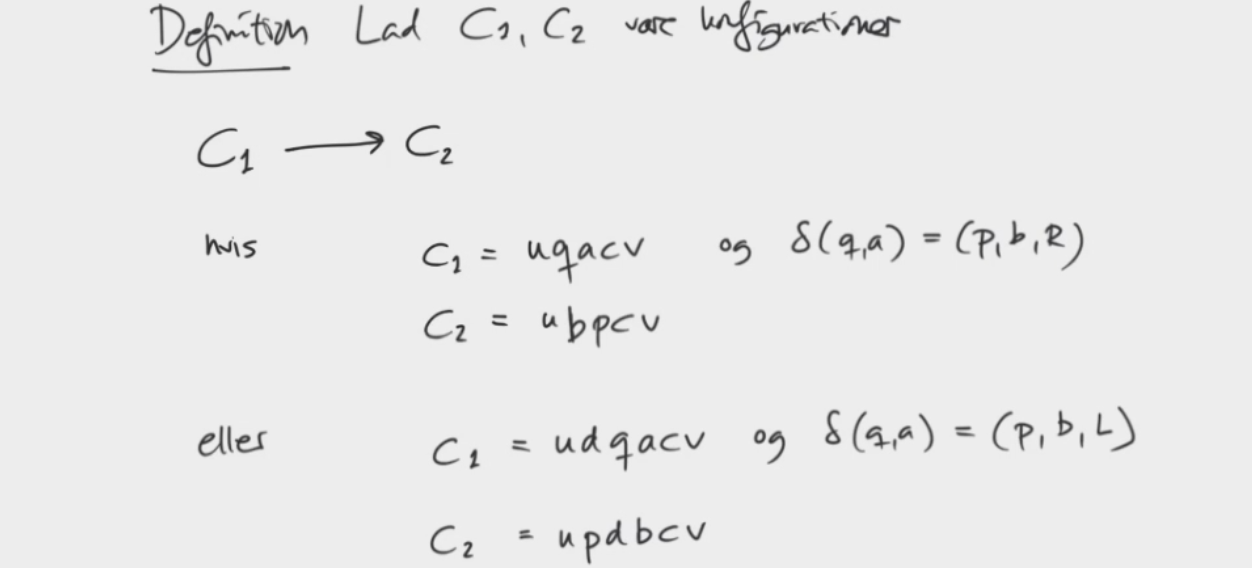 Definition Lad C₁, C₂ være konfigurationer
C₁ ⟶ C₂
hvis C₁ = uqacv og δ(q,a) = (p,b,R)
C₂ = ubpcv
eller C₁ = udqacv og δ(q,a) = (p,b,L)
C₂ = updbcv